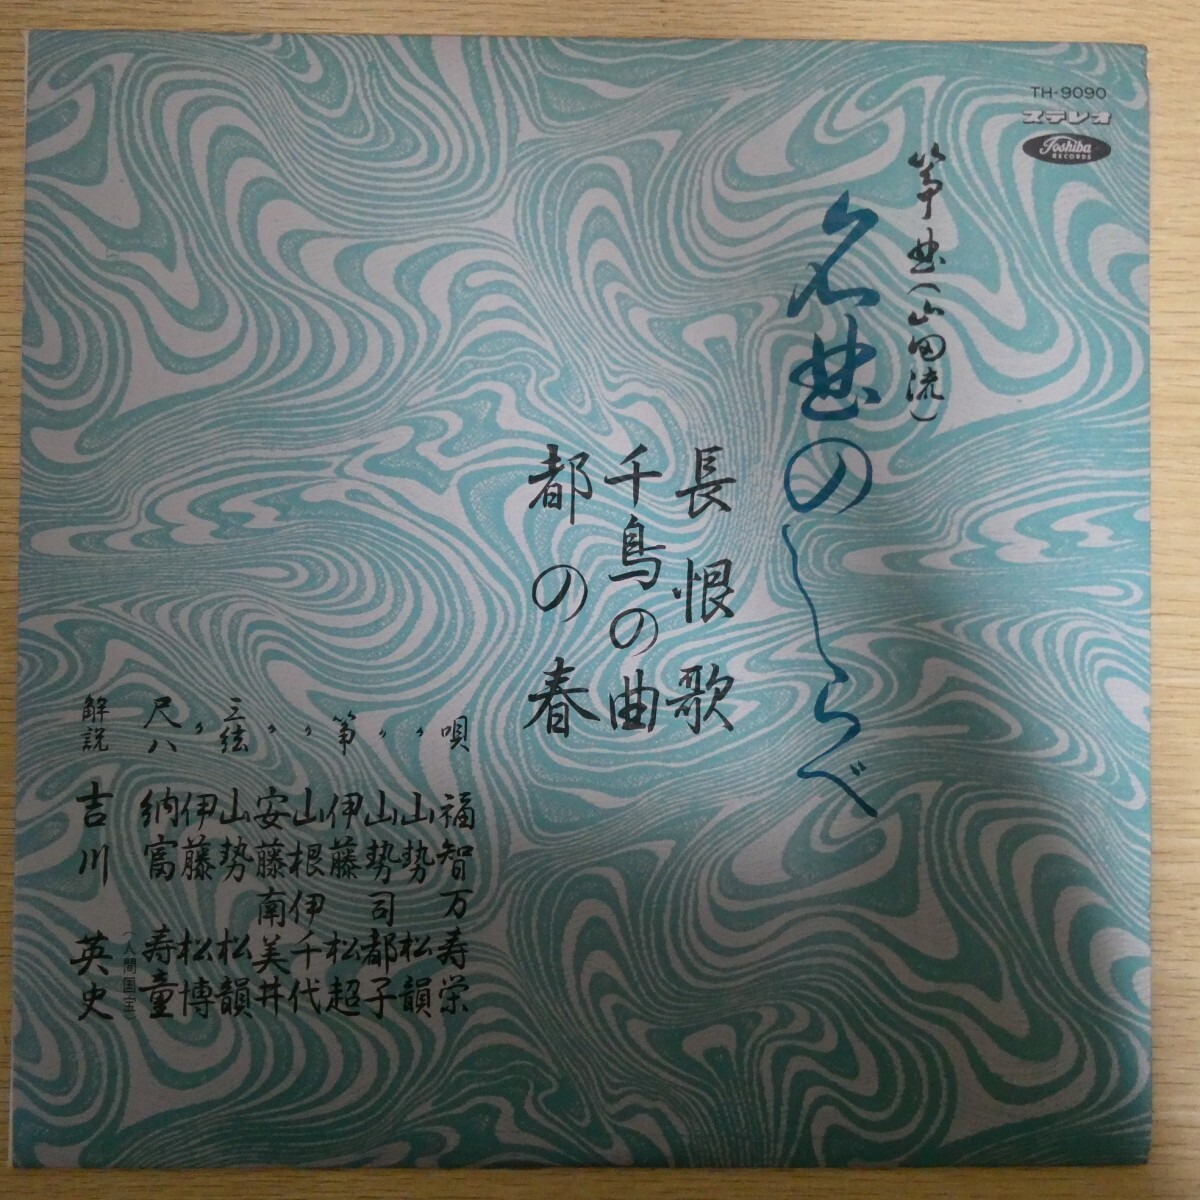 TH-9090
ステレオ
Toshiba
RECORDS
箏曲(山田流)
名曲のしらべ
長恨歌
千鳥の曲
都の春
唄 福智万寿栄
〃 山勢松韻
〃 山勢司都子
箏 伊藤松超
〃 山根伊千代
〃 安藤南美井
三弦 山勢松韻
〃 伊藤松博
尺八 納富寿童
(人間国宝)
解説 吉川英史